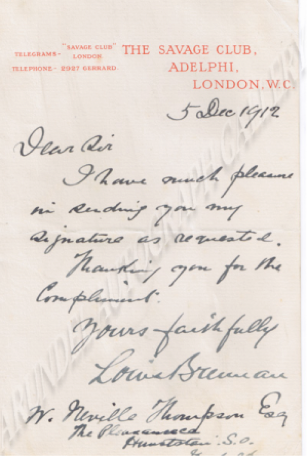 TELEGRAMS- "SAVAGE CLUB" LONDON
TELEPHONE- 2987 GERRARD.
THE SAVAGE CLUB,
ADELPHI,
LONDON, W.C.
5 Dec 1912
Dear Sir
I have much pleasure
in sending you my
signature as requested.
Thanking you for the
Compliment.
Yours faithfully
Louis Brennan
W. Neville Thompson Esq
The